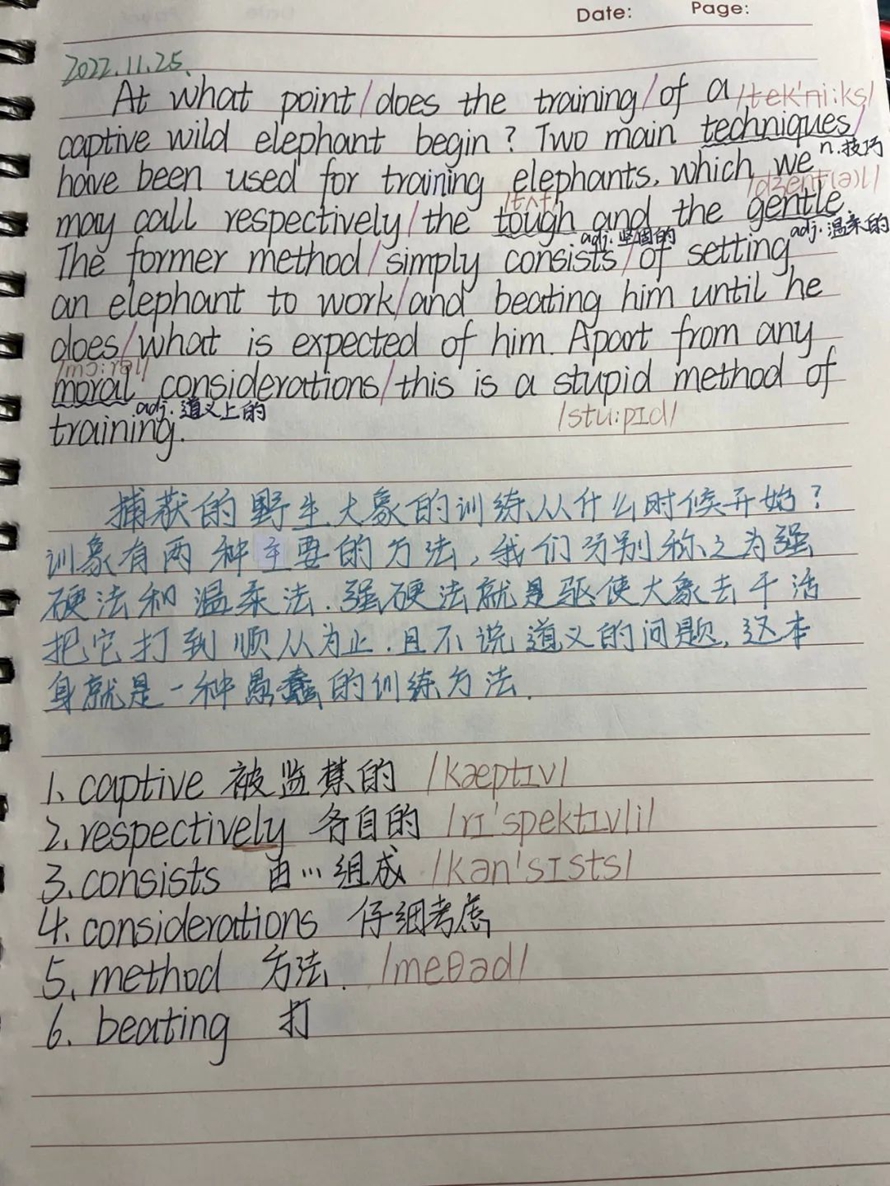 Date: Page:
2022.11.25.
At what point/does the training/of a /tek'ni:ks/
captive wild elephant begin? Two main techniques/
n.技巧
have been used for training elephants, which we
/tʌf/ /dʒent(ə)l/
may call respectively/the tough and the gentle.
adj.坚固的 adj.温柔的
The former method/simply consists/of setting
an elephant to work/and beating him until he
does/what is expected of him. Apart from any
/mɔ:rəl/
moral considerations/this is a stupid method of
adj.道义上的 /stu:pɪd/
training.
捕获的野生大象的训练从什么时候开始?
训象有两种主要的方法,我们分别称之为强
硬法和温柔法.强硬法就是驱使大象去干活
把它打到顺从为止.且不说道义的问题,这本
身就是一种愚蠢的训练方法.
1、captive 被监禁的 /kæptɪv/
2、respectively 各自的 /rɪ'spektɪvli/
3、consists 由…组成 /kən'sɪsts/
4、considerations 仔细考虑
5、method 方法. /meθəd/
6、beating 打